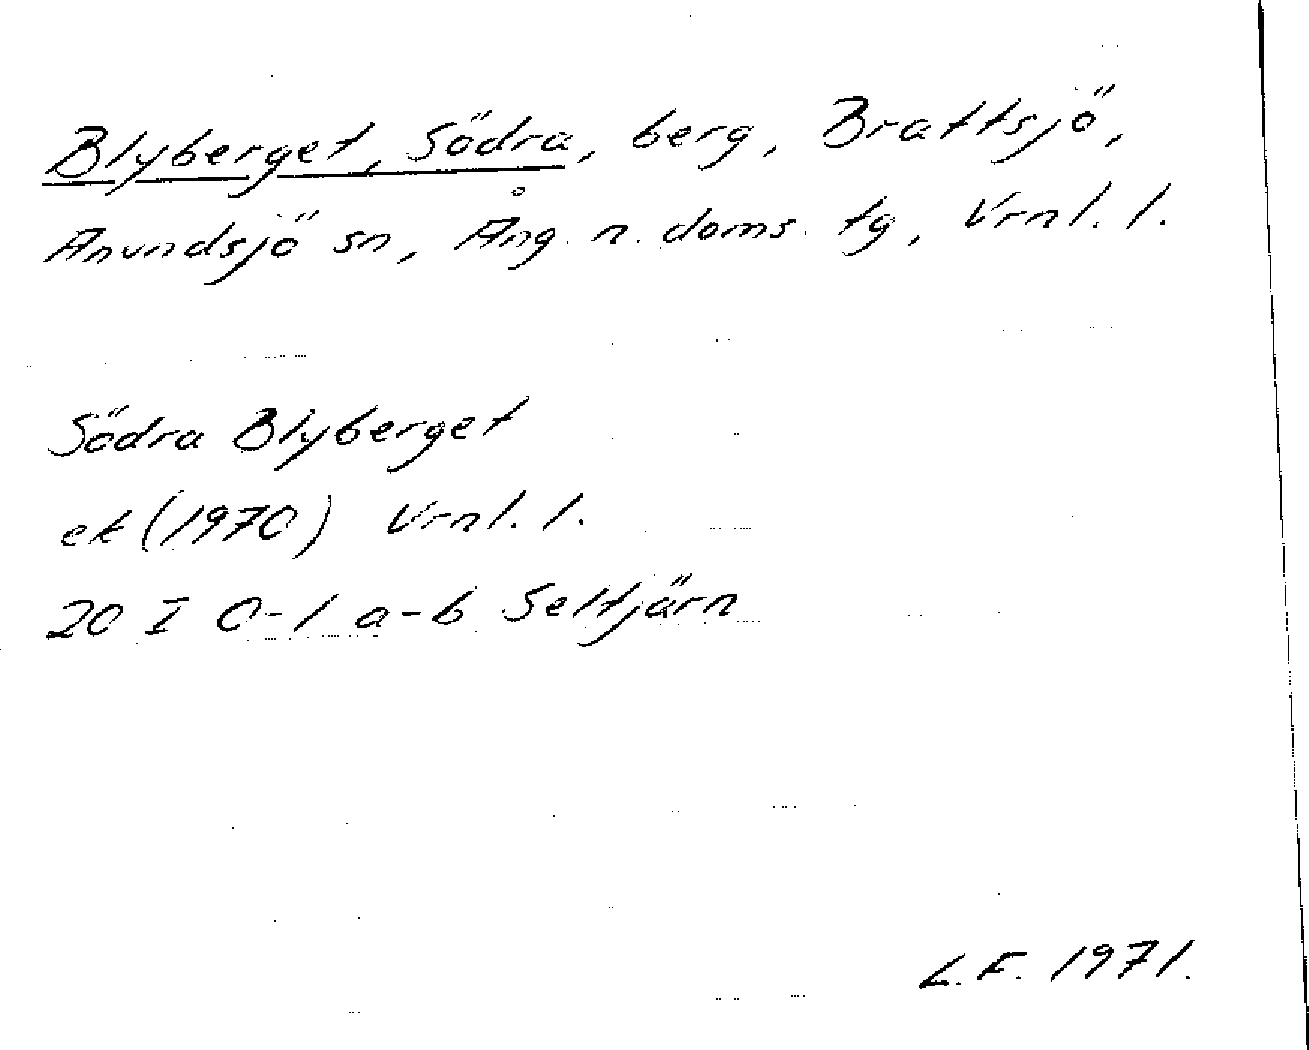 Blyberget, Södra, berg, Brattsjö,
Anundsjö sn, Ång. n. doms. tg, Vrnl. l.
Södra Blyberget
ek (1970) Vrnl. l.
20 I 0-1 a-b Seltjärn
L.F. 1971.